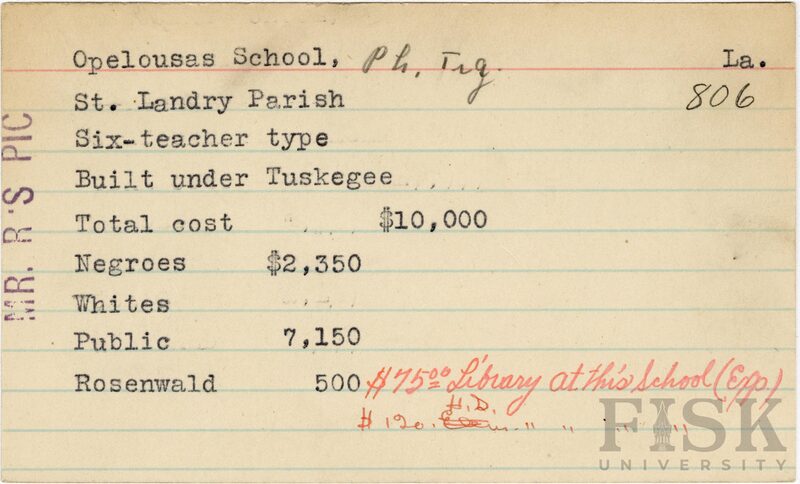 Opelousas School, Ph. Trg. La.
St. Landry Parish 806
Six-teacher type
Built under Tuskegee
Total cost $10,000
Negroes $2,350
Whites
Public 7,150
Rosenwald 500 $75.00 Library at this School (Exp)
H.D.
$120. " " " "
MR. R'S PIC
FISK
UNIVERSITY